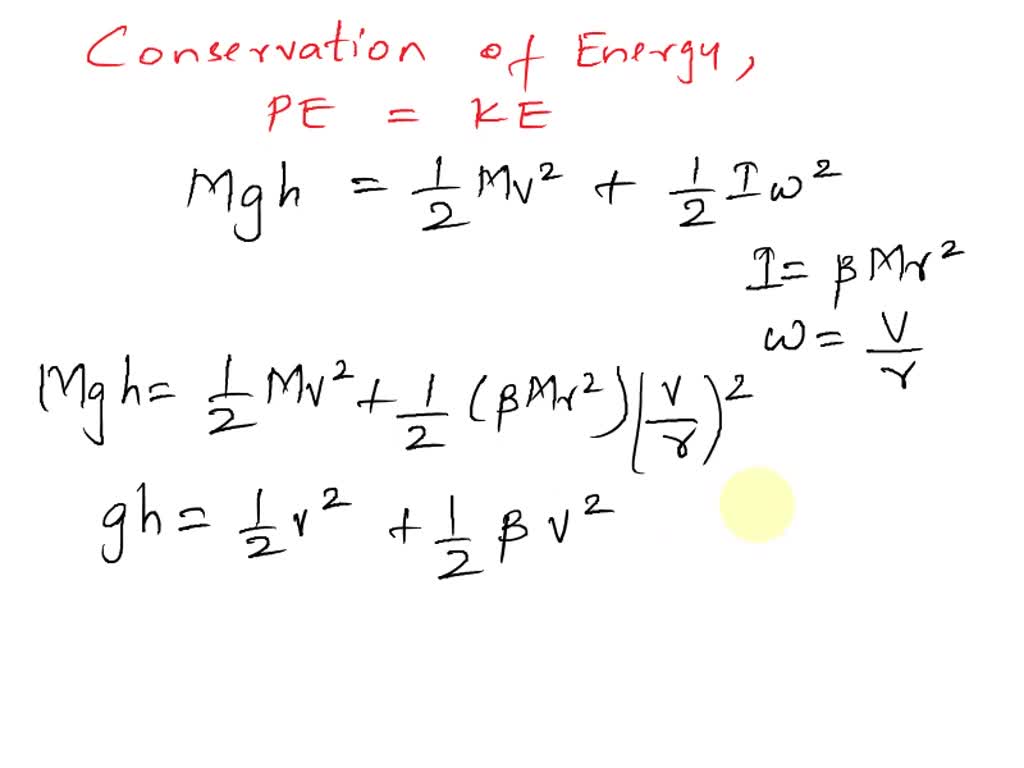 Conservation of Energy,
PE = KE
Mgh = 1/2 Mv² + 1/2 Iω²
I = βMr²
ω = v/r
Mgh = 1/2 Mv² + 1/2 (βMr²)(v/r)²
gh = 1/2 v² + 1/2 βv²